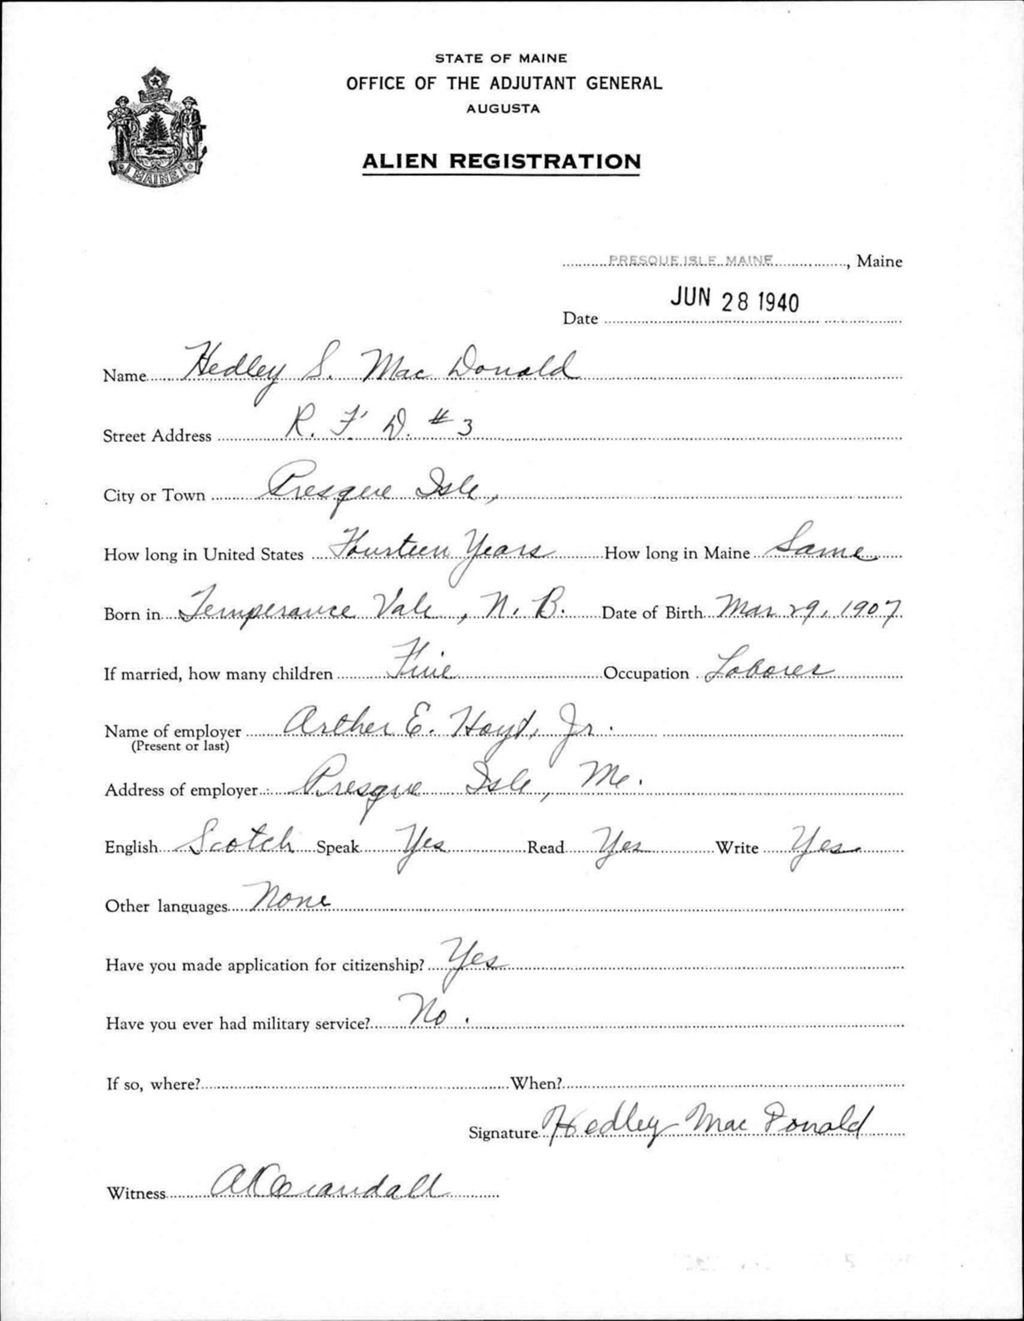 STATE OF MAINE
OFFICE OF THE ADJUTANT GENERAL
AUGUSTA
ALIEN REGISTRATION
MAINE
PRESQUE ISLE, MAINE, Maine
Date JUN 28 1940
Name Hedley S. Mac Donald
Street Address R. F. D. #3
City or Town Presque Isle,
How long in United States Fourteen Years How long in Maine Same
Born in Temperance Vale, N. B. Date of Birth Mar 29, 1907
If married, how many children Five Occupation Laborer
Name of employer Arther E. Hoyt, Jr.
(Present or last)
Address of employer Presque Isle, Me.
English Scotch Speak Yes Read Yes Write Yes
Other languages None
Have you made application for citizenship? Yes
Have you ever had military service? No.
If so, where? When?
Signature Hedley Mac Donald
Witness Crandall